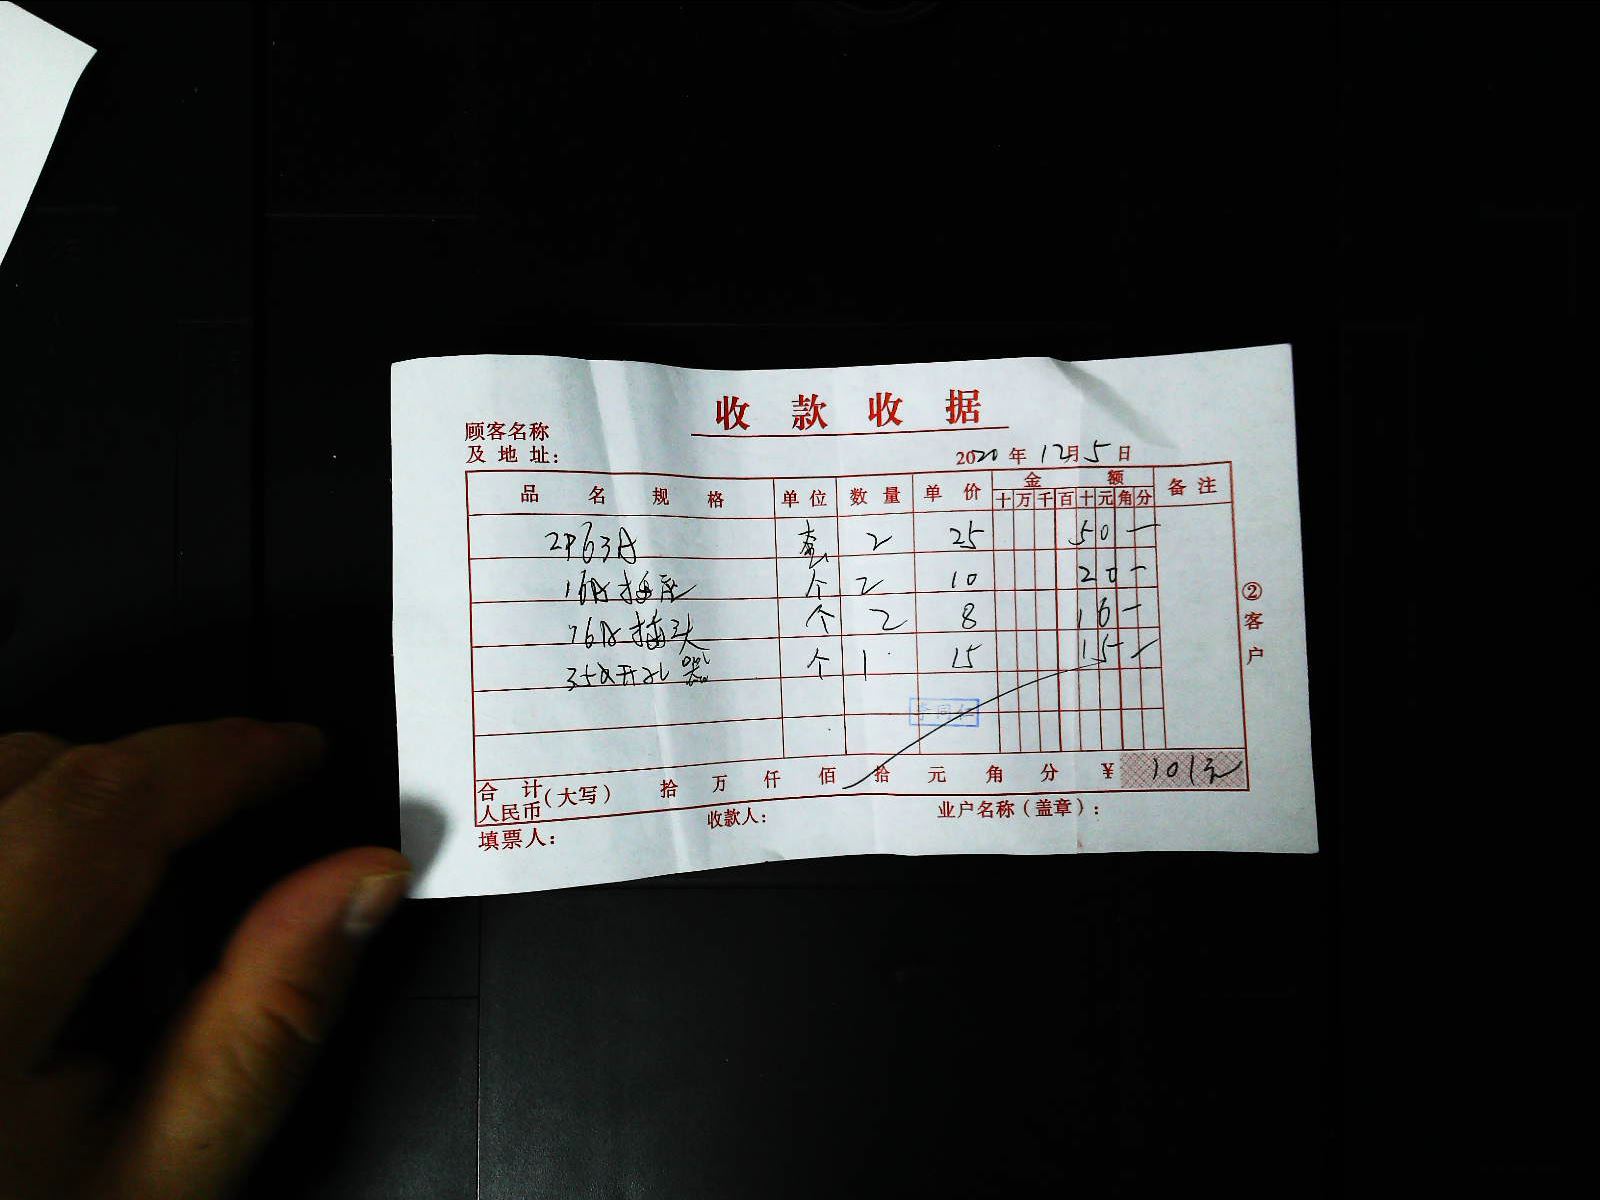 收款收据
顾客名称
及地址:
2020年12月5日
品名规格 单位 数量 单价 金额 备注
十万千百十元角分
2P63A 套 2 25 50-
16A插座 个 2 10 20-
16A插头 个 2 8 16-
35开孔器 个 1 15 15-
李同仁
合计 人民币 (大写) 拾 万 仟 佰 拾 元 角 分 ¥ 101元
填票人: 收款人: 业户名称(盖章):
②客户